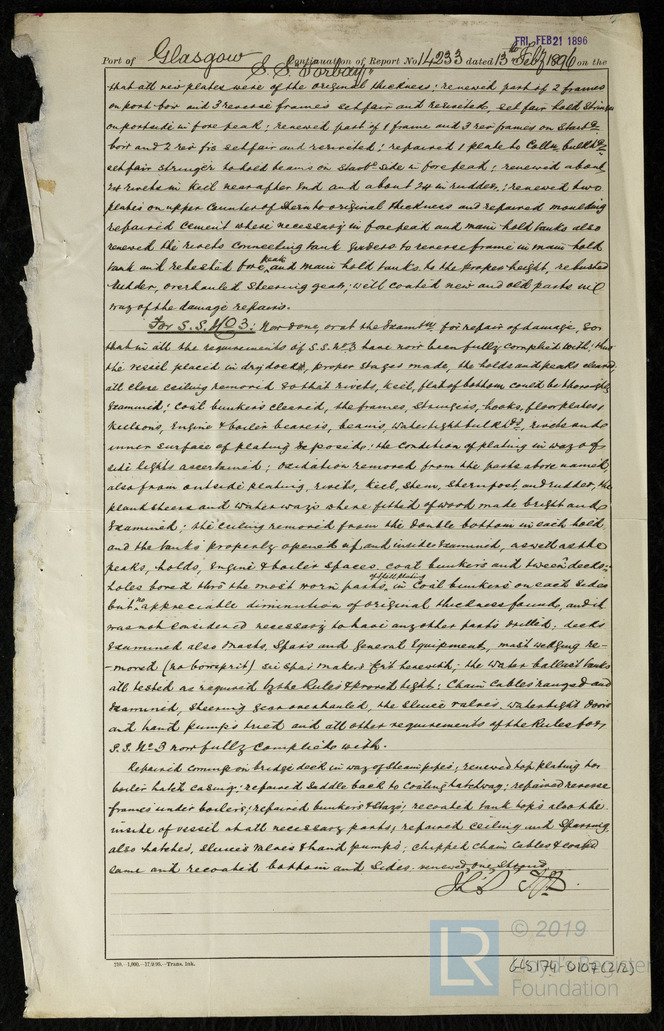 FRI. FEB 21 1896
Port of Glasgow Continuation of Report No 14233 dated 13th Feby 1896 on the
S. S. "Torbay"
that all new plates were of the original thickness; renewed part of 2 frames
on port bow and 3 reverse frames set fair and reriveted, set fair hold stringer
on portside in fore peak; renewed part of 1 frame and 3 rev frames on Starbd
bow and 2 rev frs set fair and reriveted; repaired 1 plate to Colln bulkhd
set fair stringer to hold beams on Starbd side in forepeak; renewed about
24 rivets in Keel near after end and about 24 in rudder; renewed two
plates on upper counter of Stern to original thickness and repaired moulding
repaired cement where necessary in forepeak and main hold tanks also
renewed the rivets connecting tank girders to reverse frame in main hold
tank and retested fore peak and main hold tanks to the proper height, rebushed
rudder, overhauled Steering gear, well coated new and old parts in
way of the damage repairs.
For S.S. No 3; Now done, or at the Examtn for repair of damage, so
that in all the requirements of S.S. No 3 have now been fully complied with; thus
the vessel placed in dry dock, proper stages made, the holds and peaks cleared
all close ceiling removed so that rivets, keel, flat of bottom could be thoroughly
Examined; Coal bunkers cleared, the frames, Stringers, hooks, floorplates,
Keelsons, Engine & boiler bearers, beams, watertight bulkhds, rivets and
inner surface of plating Exposed; the condition of plating in way of
side lights ascertained; Oxidation removed from the parts above named
also from outside plating, rivets, Keel, Stem, Sternpost, and rudder, the
plank sheers and waterways where fitted of wood made bright and
Examined; the ceiling removed from the double bottom in each hold
and the tanks properly opened up and inside Examined, as well as the
peaks, holds, Engine & boiler spaces, coal bunkers and tween decks;
holes bored thro the most worn parts of shell plating in Coal bunkers on each side
but no appreciable diminution of original thickness found, and it
was not considered necessary to have any other parts drilled; decks
Examined also Masts, Spars and General Equipment, mast wedging re-
-moved (no bowsprit) see Spar makers Cert herewith; the water ballast tanks
all tested as required by the Rules & proved tight; Chain Cables ranged and
Examined, Steering gear overhauled, the Sluice valves, watertight doors
and hand pumps tried and all other requirements of the Rules for
S.S. No 3 now fully complied with.
Repaired coamings on bridge deck in way of Steam pipes; renewed top plating to
boiler hatch casing; repaired Saddle back to Coaling hatchway; repaired reverse
frames under boilers; repaired bunkers & Stays; recoated tank tops also the
inside of vessel at all necessary parts, repaired ceiling and Sparring
also hatches, Sluice Valves & hand pumps; chipped chain Cables & coated
same and recoated bottom and Sides. renewed one Shroud
219. 1,000.—17.9.95.—Trans. Ink.
GLS174-0107(2/2)
LR
© 2019
Lloyd's Register
Foundation